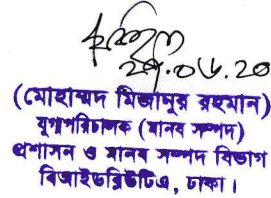 ২৭.০৬.২০
(মোহাম্মদ মিজানুর রহমান)
যুগ্মপরিচালক (মানব সম্পদ)
প্রশাসন ও মানব সম্পদ বিভাগ
বিআইডব্লিউটিএ, ঢাকা।